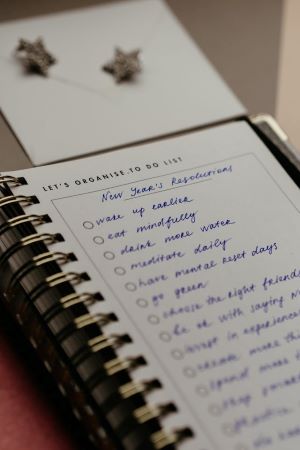 LET'S ORGANISE. TO DO LIST
New Year's Resolutions
wake up earlier
eat mindfully
drink more water
meditate daily
have mental reset days
go green
choose the right friends
be ok with saying
invest in experiences
create more
spend more